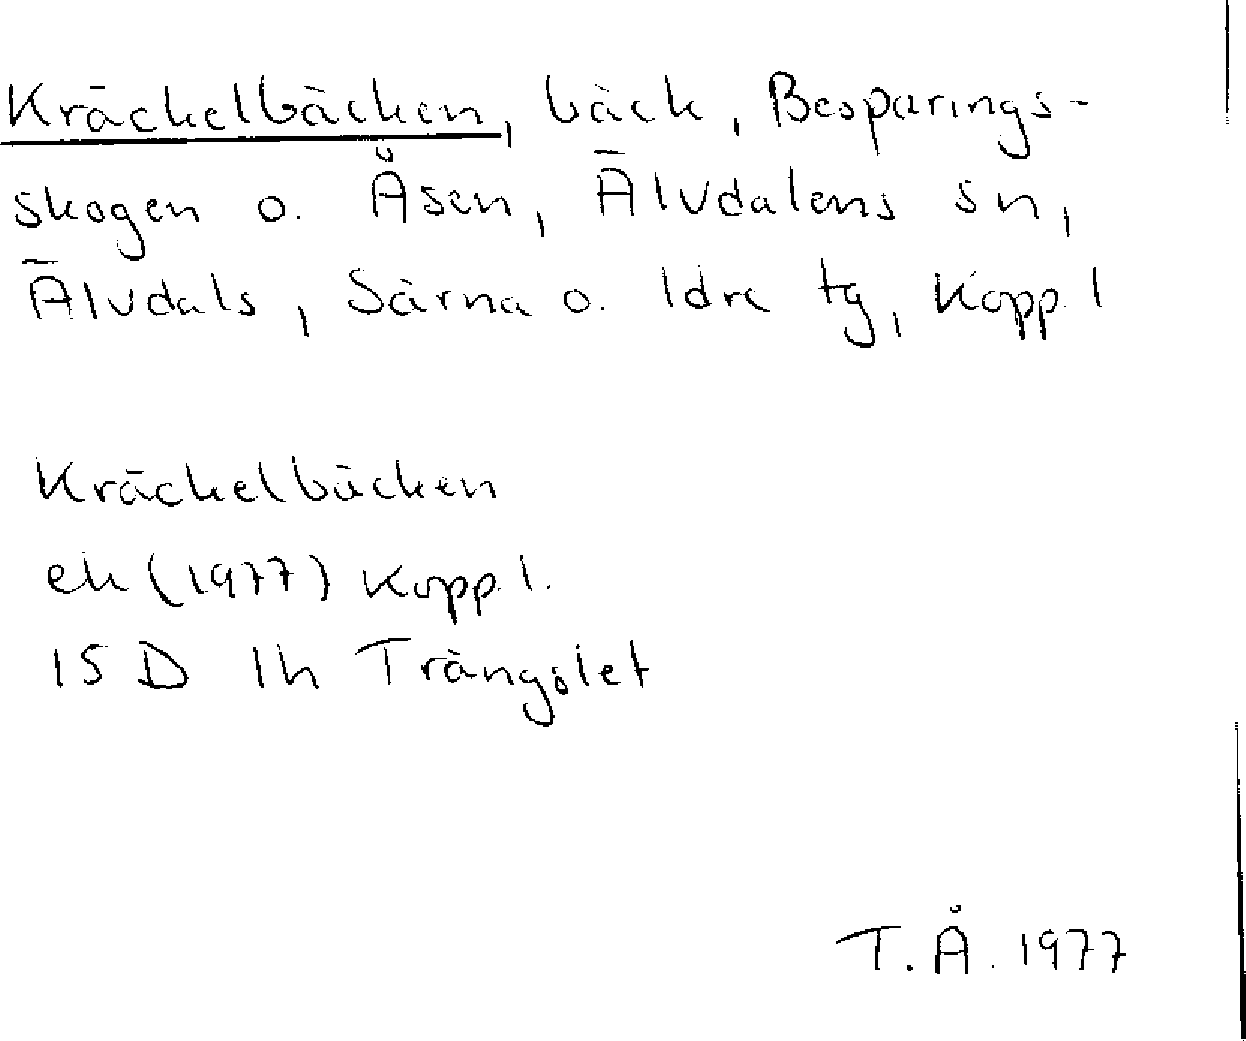 Kräckelbäcken, bäck, Besparings-
skogen o. Åsen, Älvdalens sn,
Älvdals, Särna o. Idre tg, Kopp. l
Kräckelbäcken
ek (1977) Kopp. l.
15 D 1h Trängslet
T.Å. 1977